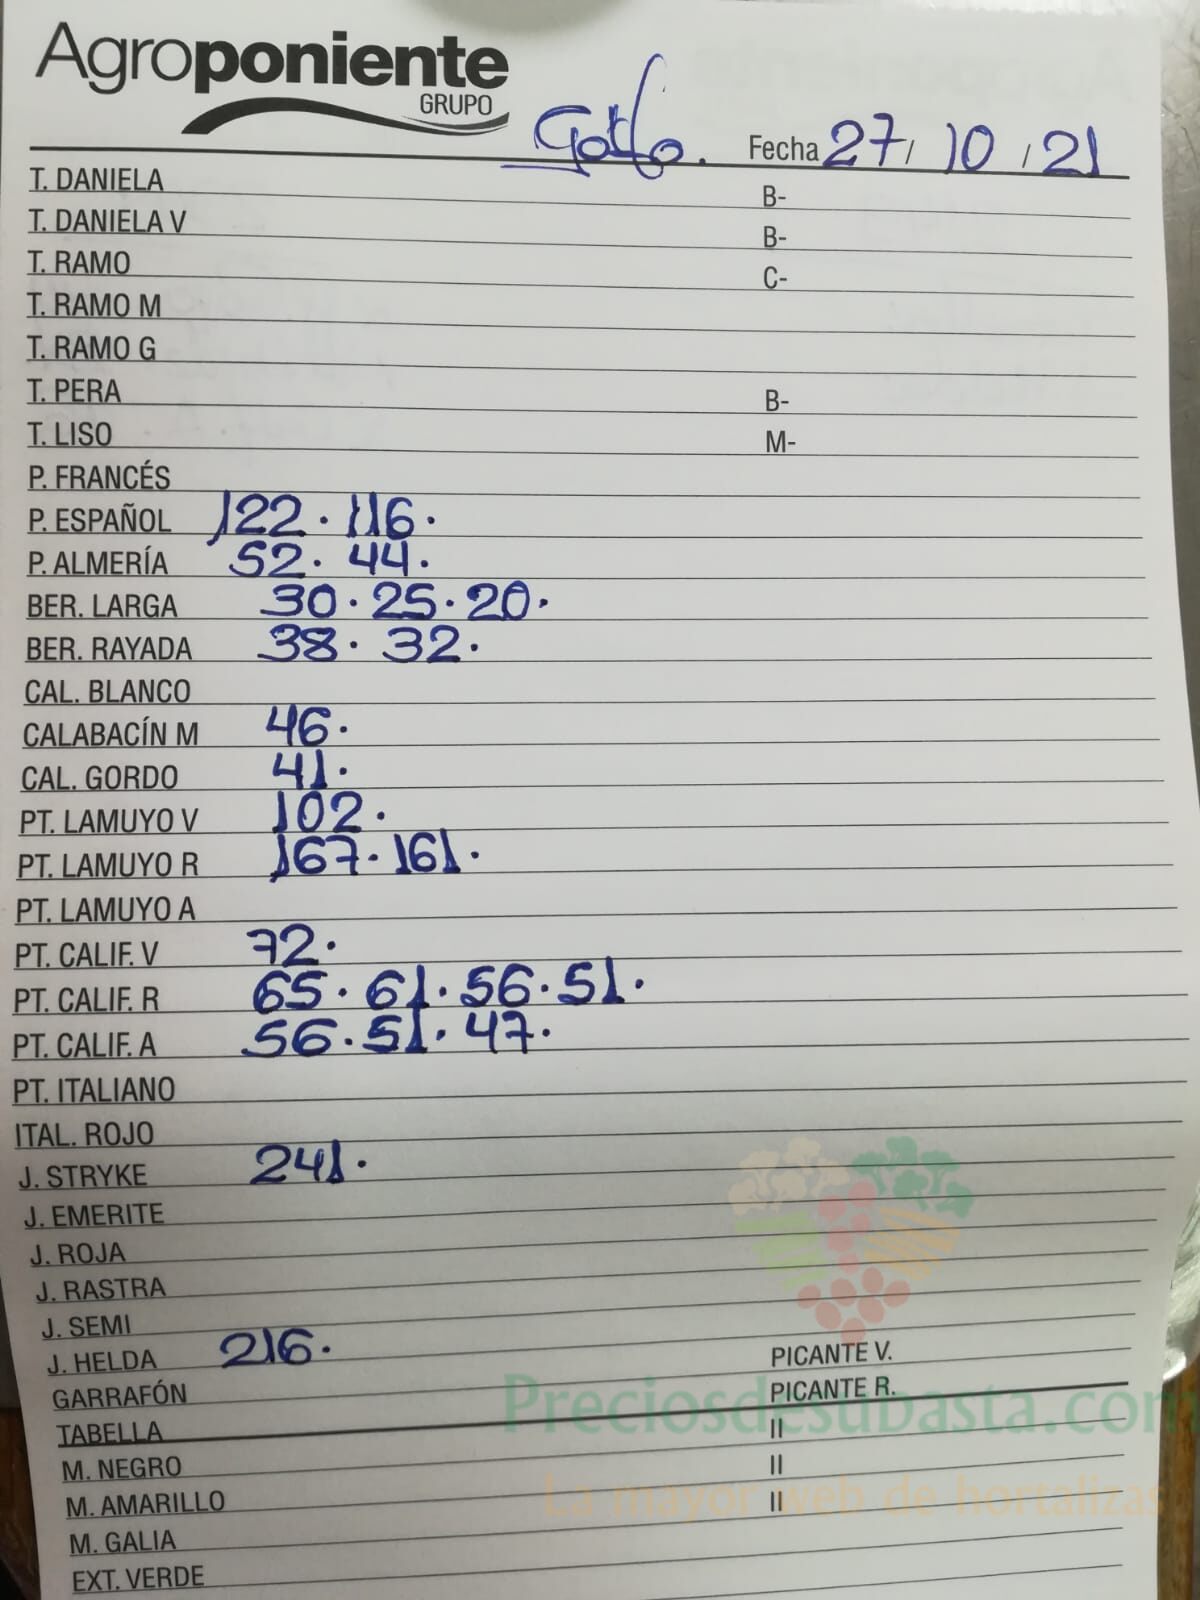 Agroponiente
GRUPO
Fecha 27/ 10 / 21
T. DANIELA B-
T. DANIELA V B-
T. RAMO C-
T. RAMO M
T. RAMO G
T. PERA B-
T. LISO M-
P. FRANCÉS
P. ESPAÑOL 122. 116.
P. ALMERÍA 52. 44.
BER. LARGA 30. 25. 20.
BER. RAYADA 38. 32.
CAL. BLANCO
CALABACÍN M 46.
CAL. GORDO 41.
PT. LAMUYO V 102.
PT. LAMUYO R 167. 161.
PT. LAMUYO A
PT. CALIF. V 72.
PT. CALIF. R 65. 61. 56. 51.
PT. CALIF. A 56. 51. 47.
PT. ITALIANO
ITAL. ROJO
J. STRYKE 241.
J. EMERITE
J. ROJA
J. RASTRA
J. SEMI
J. HELDA 216. PICANTE V.
GARRAFÓN PICANTE R.
Preciosdesubasta.com
TABELLA II
M. NEGRO II
M. AMARILLO II
La mayor web de hortalizas
M. GALIA
EXT. VERDE